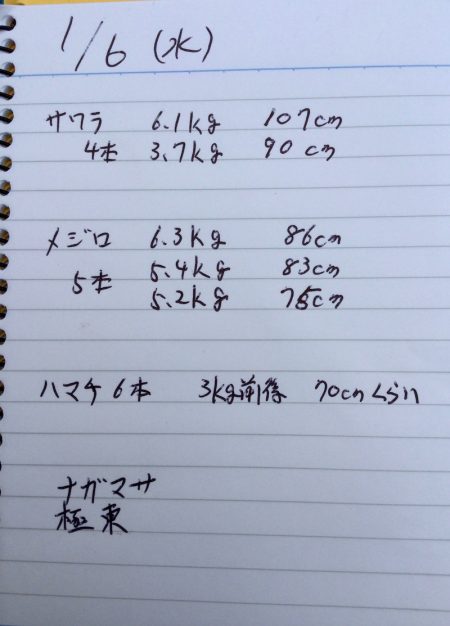 1/6 (水)
サワラ 6.1kg 107cm
4本 3.7kg 90cm
メジロ 6.3kg 86cm
5本 5.4kg 83cm
5.2kg 75cm
ハマチ 6本 3kg前後 70cmくらい
ナガマサ
極東